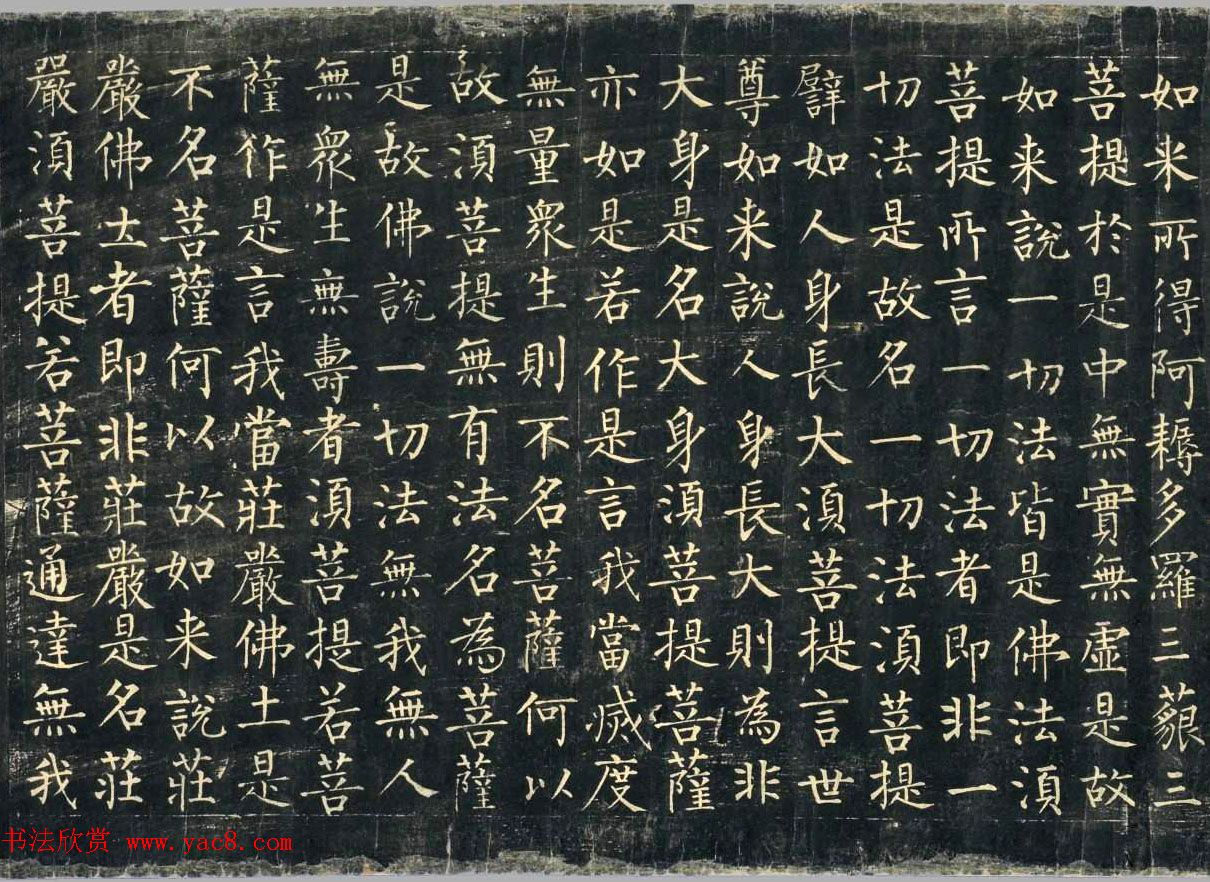 如来所得阿耨多羅三藐三
菩提於是中無實無虛是故
如来說一切法皆是佛法須
菩提所言一切法者即非一
切法是故名一切法須菩提
譬如人身長大須菩提言世
尊如来說人身長大則為非
大身是名大身須菩提菩薩
亦如是若作是言我當滅度
無量眾生則不名菩薩何以
故須菩提無有法名為菩薩
是故佛說一切法無我無人
無眾生無壽者須菩提若菩
薩作是言我當莊嚴佛土是
不名菩薩何以故如来說莊
嚴佛土者即非莊嚴是名莊
嚴須菩提若菩薩通達無我
书法欣赏 www.yac8.com